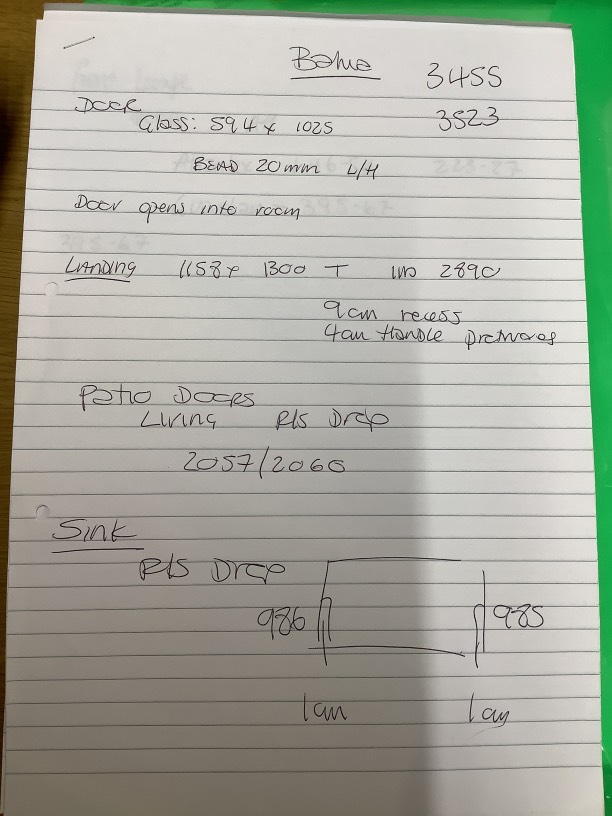 3455
3523
DOOR
Glass: 594 x 1025
BEAD 20mm L/H
Door opens into room
LANDING 1158 x 1300 T 2890
9cm recess
4cm Handle
Patio Doors
Living R/S Drop
2057/2060
Sink
R/S Drop
986 985
1cm 1cm